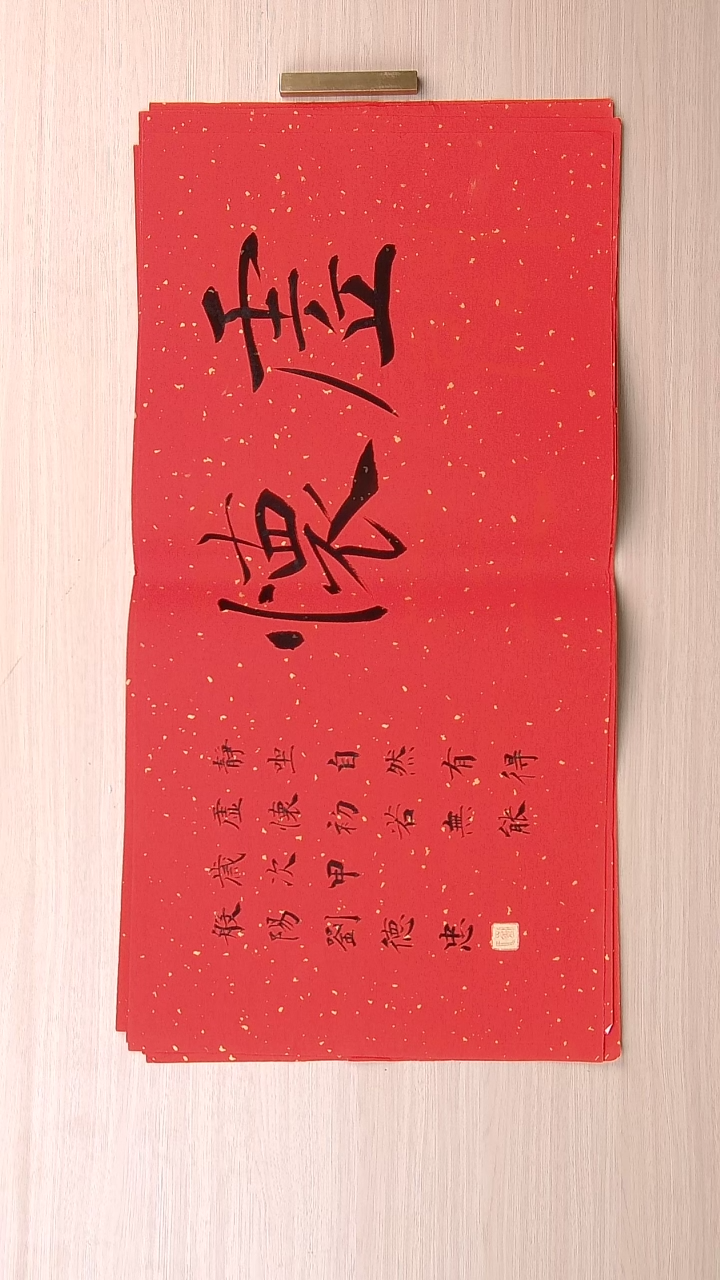 虚懷
靜坐自然有得
虚懷初若無能
歲次甲
般陽劉德忠